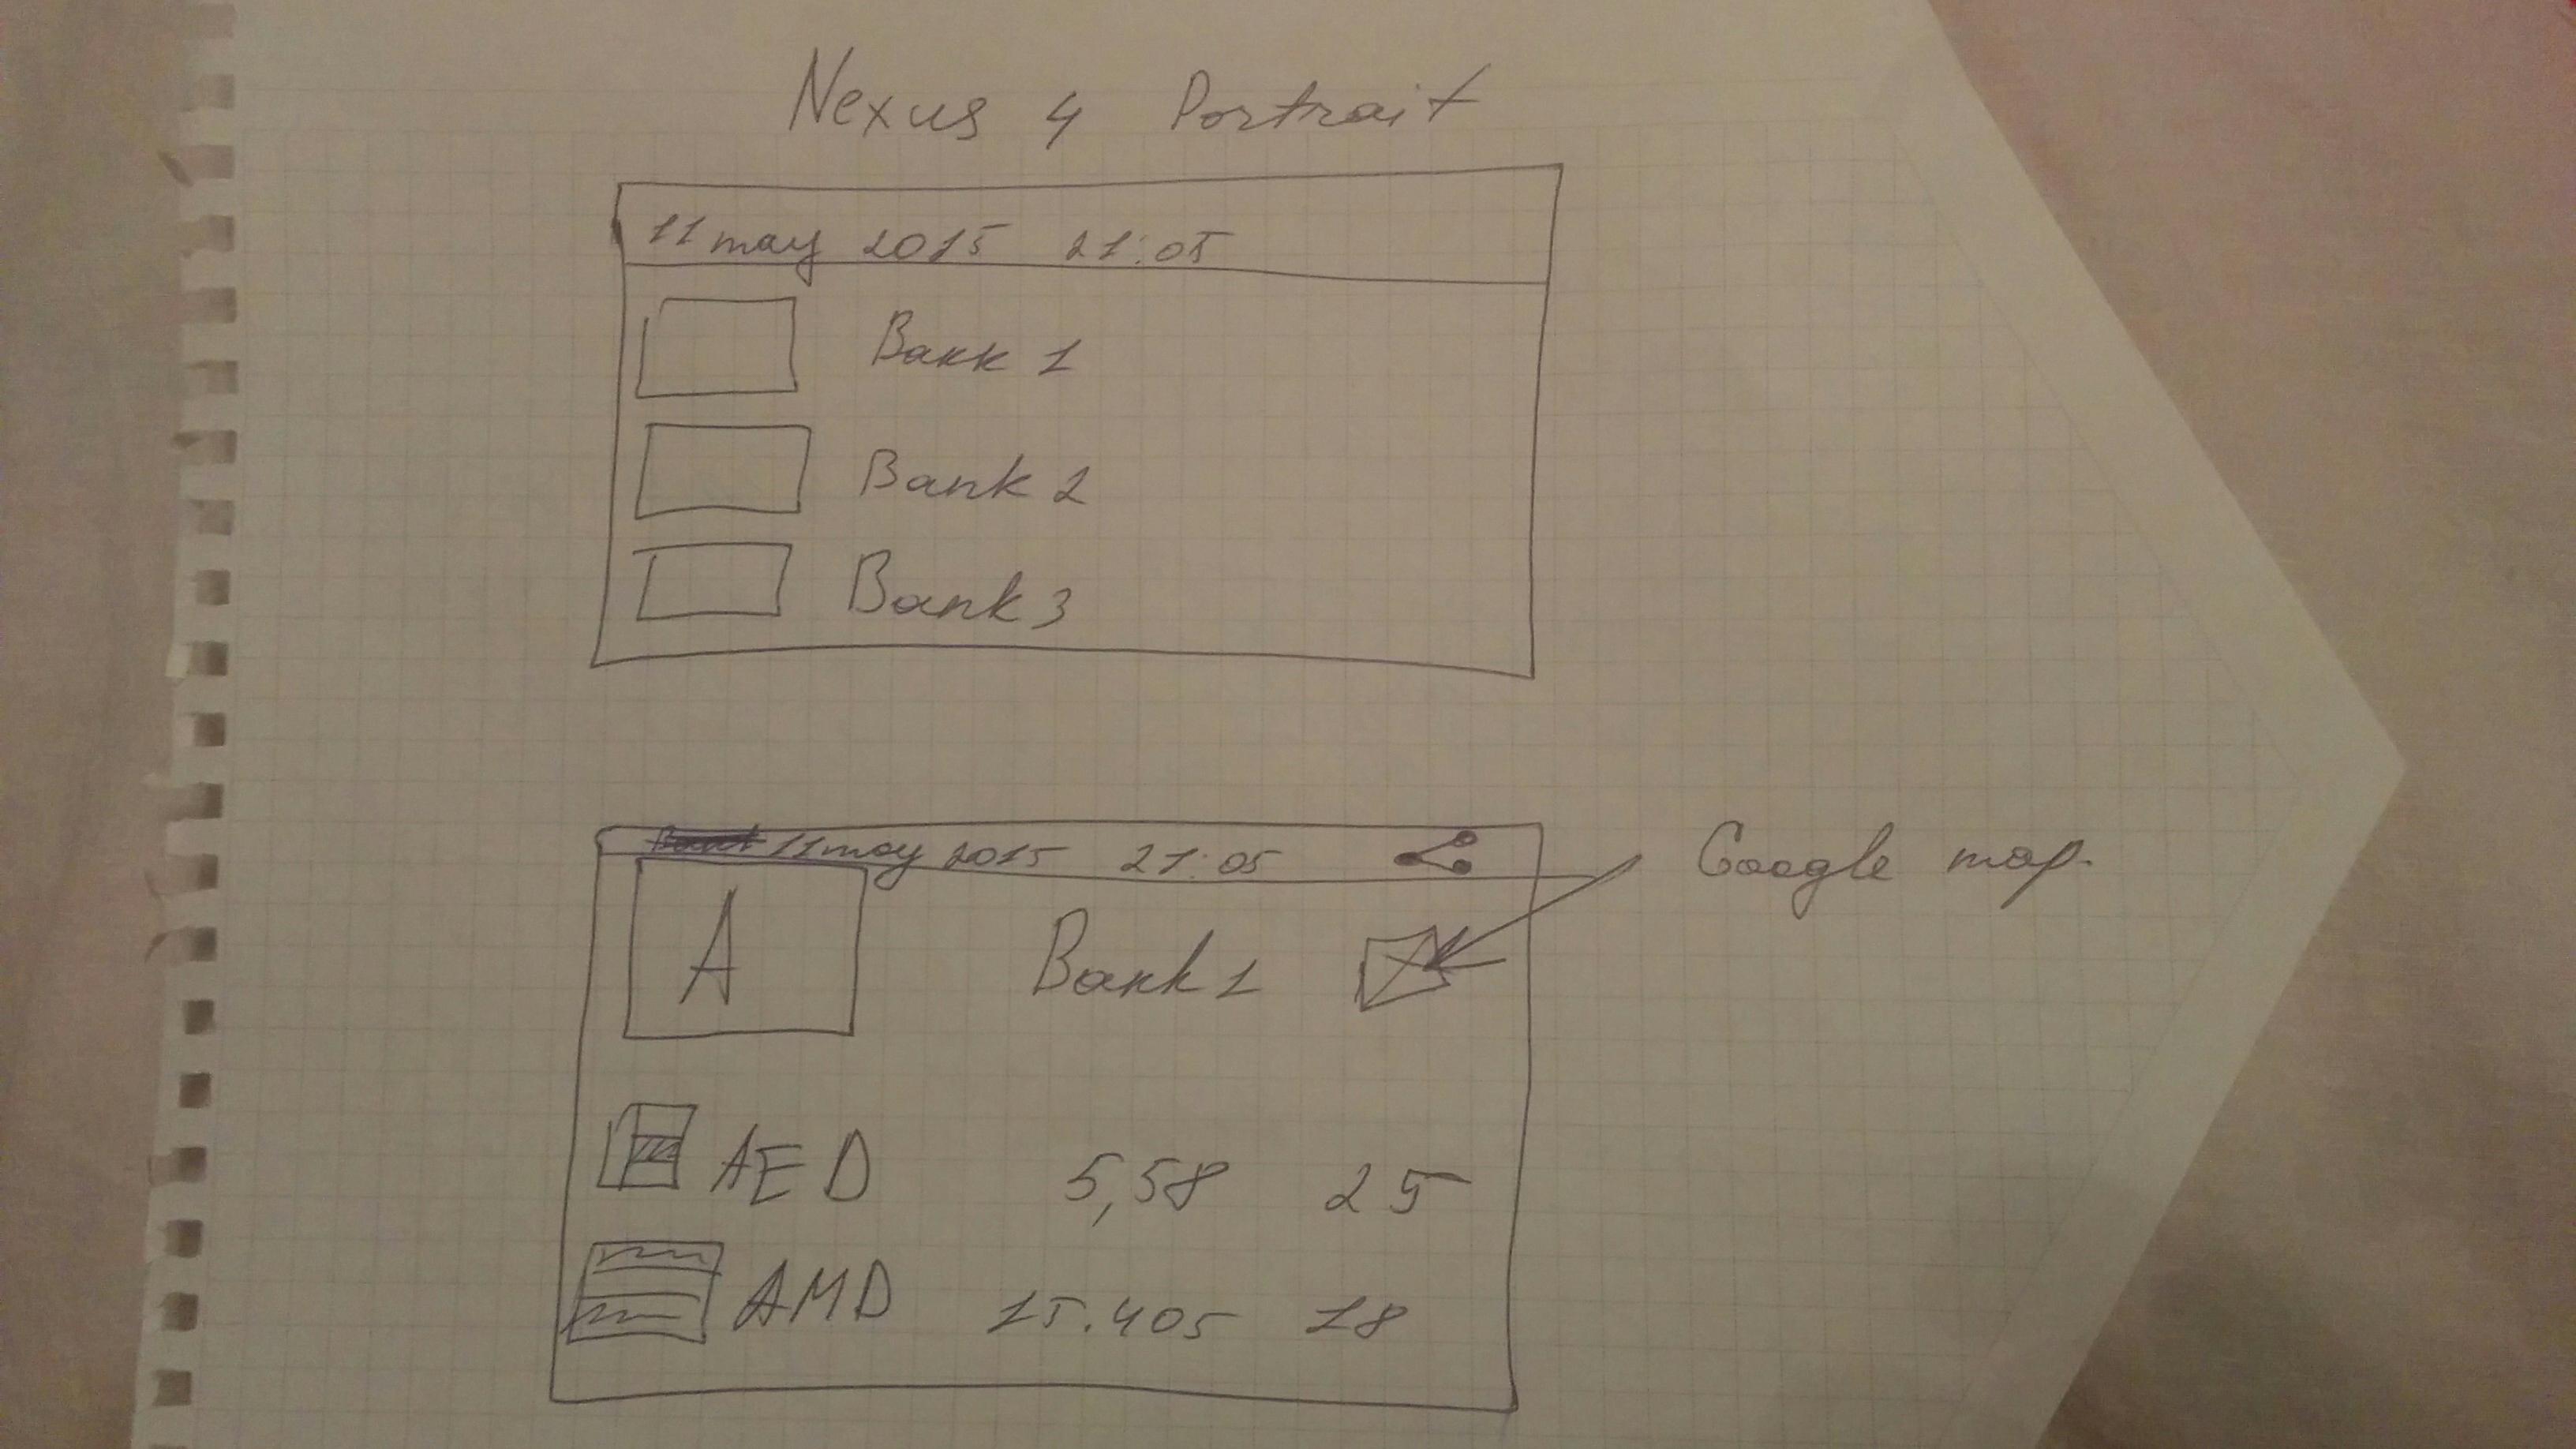 Nexus 4 Portrait
11 may 2015 21:05
Bank 1
Bank 2
Bank 3
11 may 2015 21:05
Google map
A Bank 1
AED 5,58 25
AMD 15.405 18